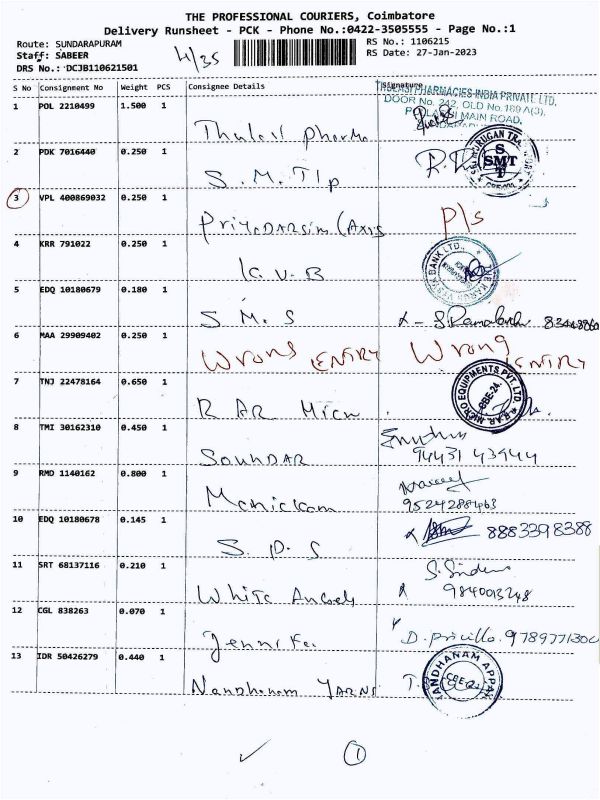 THE PROFESSIONAL COURIERS, Coimbatore
Delivery Runsheet - PCK - Phone No.:0422-3505555 - Page No.:1
Route: SUNDARAPURAM
Staff: SABEER
DRS No.: DCJB110621501
4/35
RS No.: 1106215
RS Date: 27-Jan-2023
S No Consignment No Weight PCS Consignee Details Signature
1 POL 2210499 1.500 1 Thulasi Pharma
PHARMACIES INDIA PRIVATE LTD,
DOOR No. 242, OLD No. 189 A(3),
MAIN ROAD,
2 PDK 7016440 0.250 1 S.M.T
SMT
3 VPL 400869032 0.250 1 Priyadarsini (Axis P/s
4 KRR 791022 0.250 1 K.V.B
BANK LTD.,
5 EDQ 10180679 0.180 1 S.M.S
6 MAA 29909402 0.250 1 Wrong ENTRY Wrong ENTRY
7 TNJ 22478164 0.650 1 RAR Micro
R.A.R. MICRO EQUIPMENTS PVT. LTD
CBE-24.
8 TMI 30162310 0.450 1 SOUNDAR
94431 43944
9 RMD 1140162 0.800 1 Manickam
9524288463
10 EDQ 10180678 0.145 1 S.D.S 8883398388
11 SRT 68137116 0.210 1 White
9840013248
12 CGL 838263 0.070 1 D. Priscilla. 978977130
13 IDR 50426279 0.440 1 Nandhanam YARNS
NANDHANAM
1